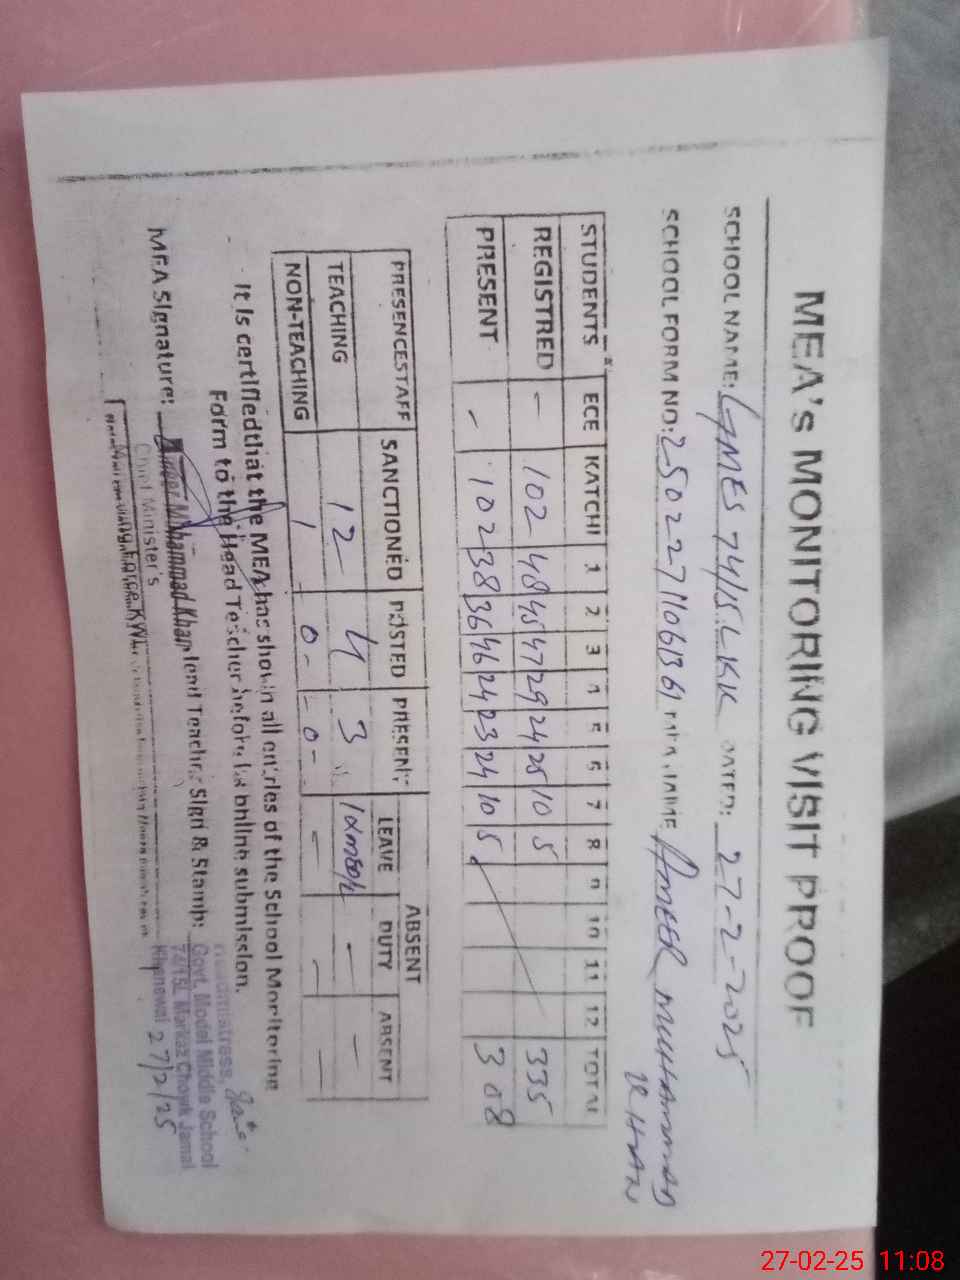 MEA's MONITORING VISIT PROOF
SCHOOL NAME: GMES 74/15L KK DATED: 27-2-2025
SCHOOL FORM NO: 25022711061361 AMEER MUHAMMAD
KHAN
STUDENTS ECE KATCHI 1 2 3 4 5 6 7 8 9 10 11 12 TOTAL
REGISTRED - 102 48 45 47 29 24 25 10 5 335
PRESENT - 102 38 36 46 24 23 24 10 5 308
ABSENT
PRESENCESTAFF SANCTIONED POSTED PRESENT LEAVE DUTY ABSENT
TEACHING 12 4 3 - -
NON-TEACHING 1 0- -0- - - -
It is certifiedthat the MEA has shown all entries of the School Monitoring
Form to the Head Teacher before his online submission.
MEA Signature: Head Teacher Sign & Stamp:
Ameer Muhammad Khan
Chief Minister's
Monitoring Force KWL
Headmistress,
Govt. Model Middle School
74/15L Markaz Chowk Jamal
Khanewal 27/2/25
27-02-25 11:08